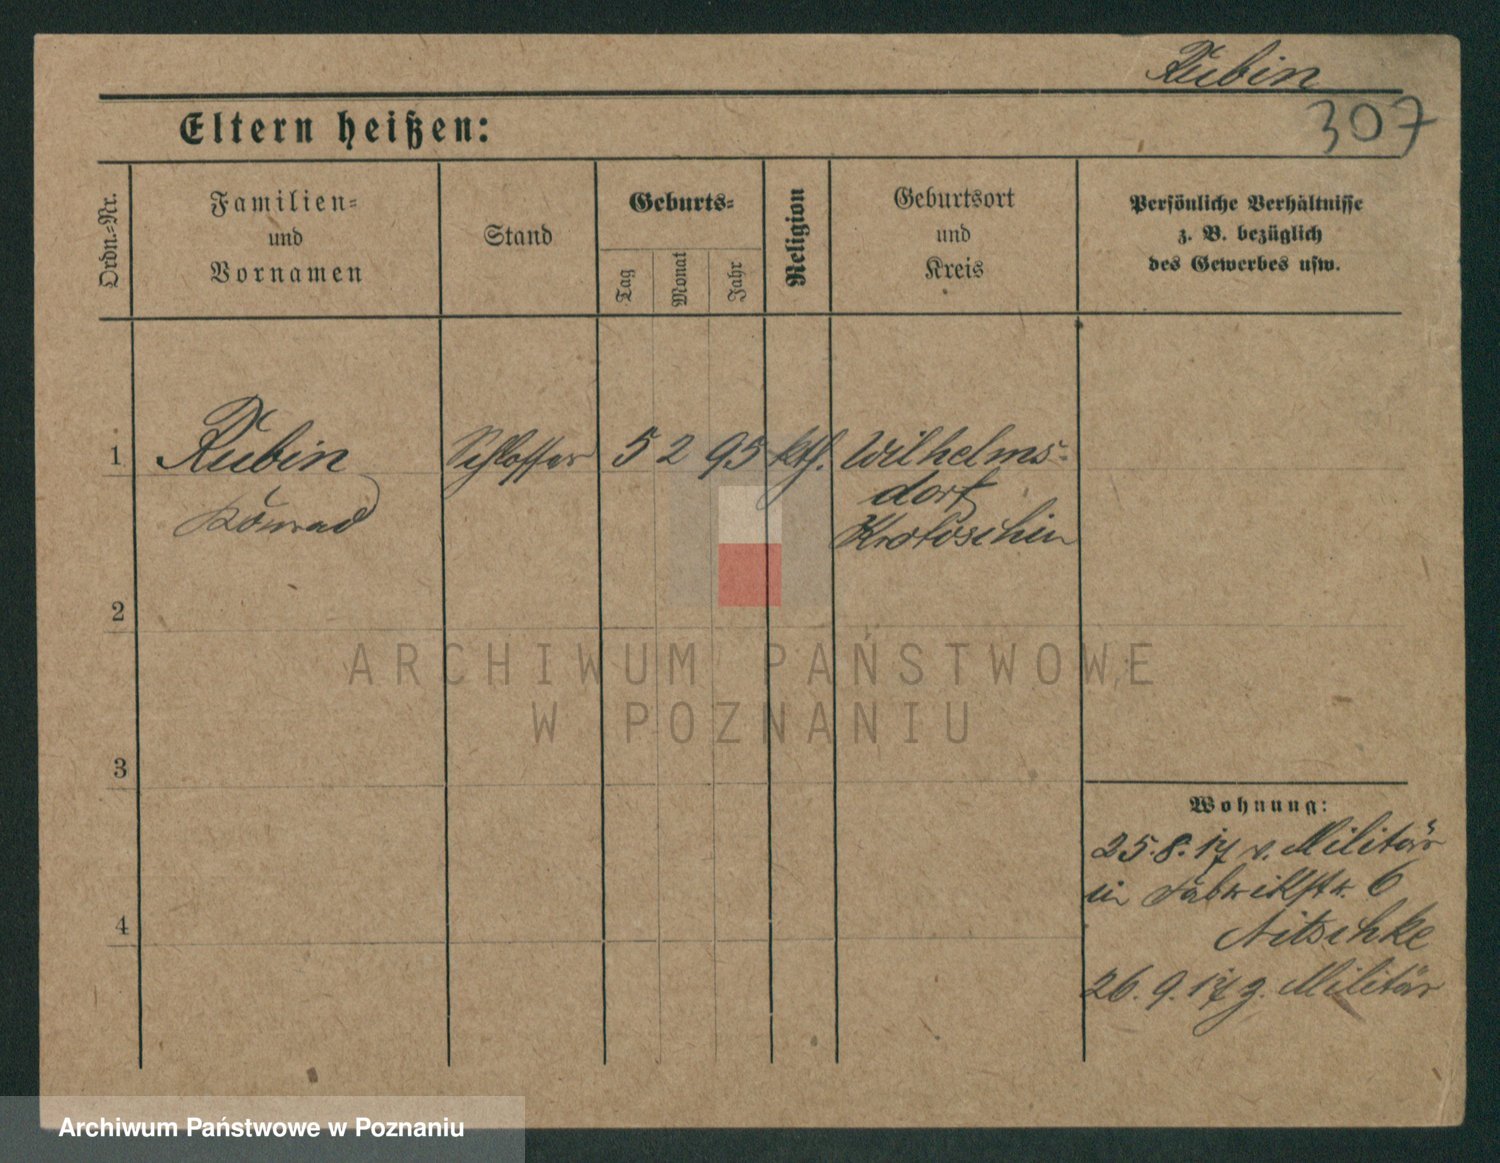 Rubin
307
Eltern heißen:
Ordn.-Nr.
Familien-
und
Vornamen
Stand
Geburts-
Tag
Monat
Jahr
Religion
Geburtsort
und
Kreis
Persönliche Verhältnisse
z. B. bezüglich
des Gewerbes usw.
1
Rubin
Konrad
Schlosser
5 2 95
kth.
Wilhelms-
dorf
Krotoschin
2
3
4
Wohnung:
25.8.17 v. Militär
in Fabrikstr. 6
Nitschke
26.9.17 z. Militär
ARCHIWUM PAŃSTWOWE
W POZNANIU
Archiwum Państwowe w Poznaniu